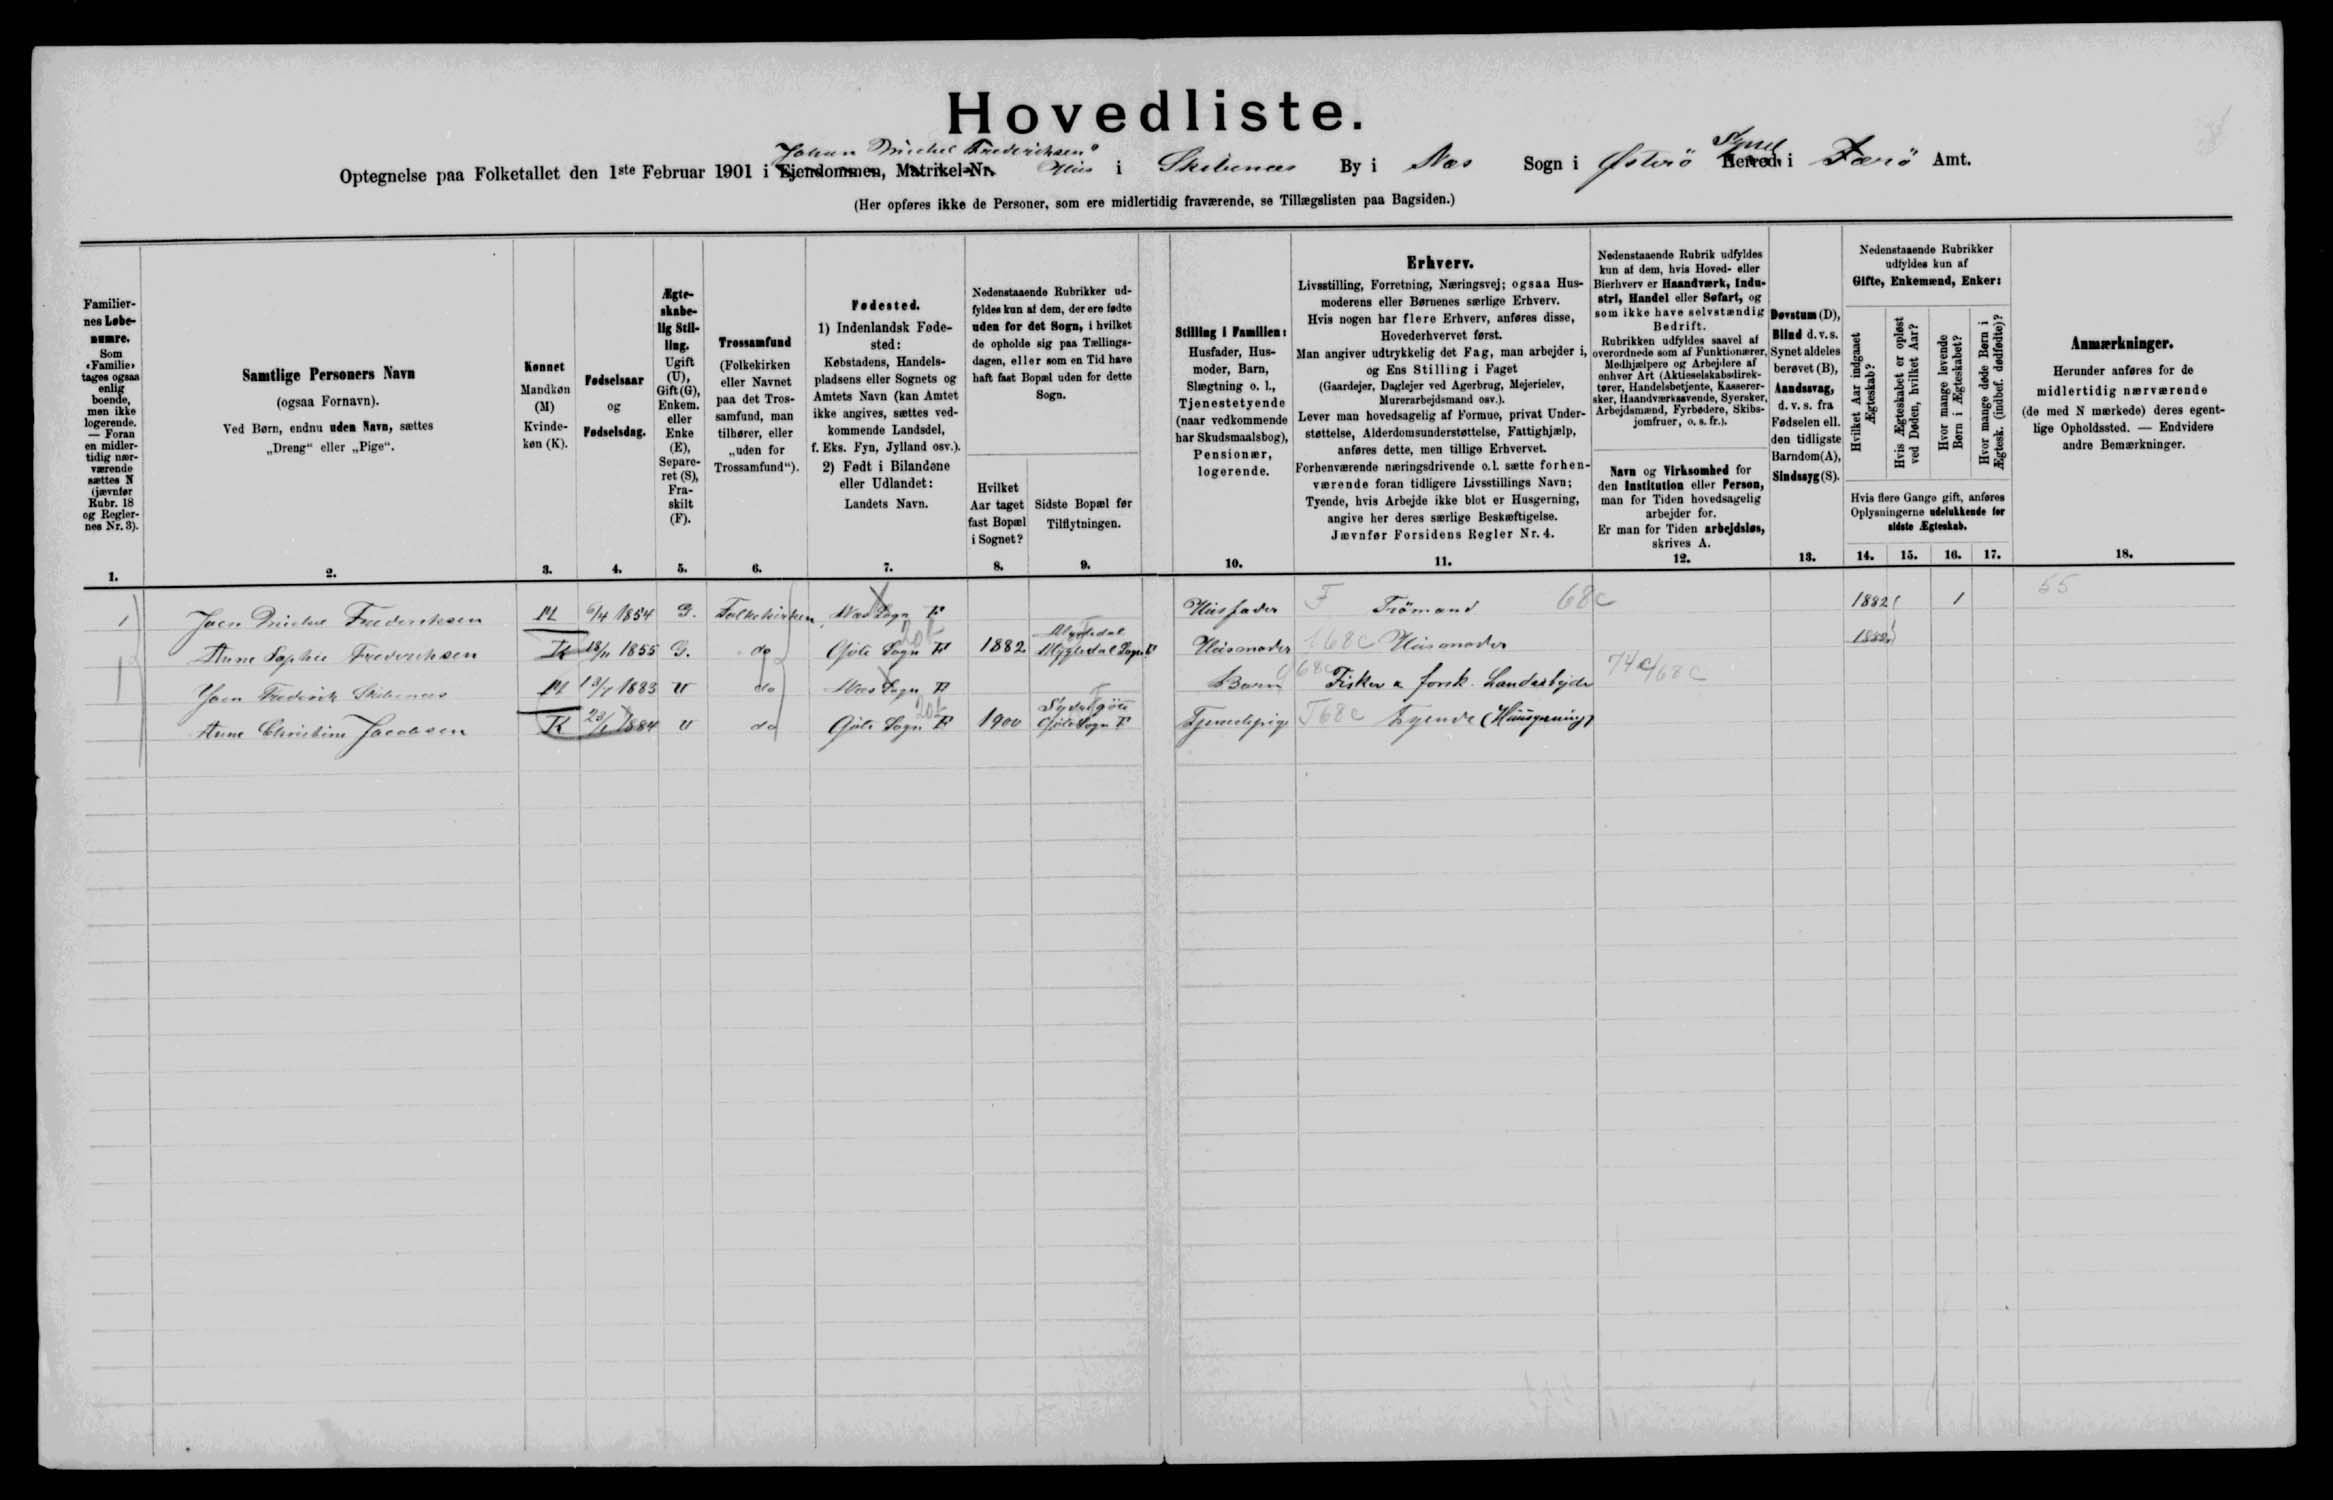 Hovedliste.
Johan Michel Frederiksens
Optegnelse paa Folketallet den 1ste Februar 1901 i Ejendommen, Matrikel-Nr. Hus i Skibenæs By i Næs Sogn i Østerø Syssel Herred i Færø Amt.
(Her opføres ikke de Personer, som ere midlertidig fraværende, se Tillægslisten paa Bagsiden.)
Familiernes Løbenumre.
Som «Familie» tages ogsaa enlig boende, men ikke logerende. — Foran en midlertidig nærværende sættes N (jævnfør Rubr. 18 og Reglernes Nr. 3).
1.
Samtlige Personers Navn
(ogsaa Fornavn).
Ved Børn, endnu uden Navn, sættes
„Dreng“ eller „Pige“.
2.
Kønnet
Mandkøn (M)
Kvindekøn (K).
3.
Fødselsaar
og
Fødselsdag.
4.
Ægteskabelig Stilling.
Ugift (U), Gift (G), Enkem. eller Enke (E), Separeret (S), Fraskilt (F).
5.
Trossamfund
(Folkekirken eller Navnet paa det Trossamfund, man tilhører, eller „uden for Trossamfund“).
6.
Fødested.
1) Indenlandsk Fødested:
Købstadens, Handelspladsens eller Sognets og Amtets Navn (kan Amtet ikke angives, sættes vedkommende Landsdel, f. Eks. Fyn, Jylland osv.).
2) Født i Bilandene eller Udlandet:
Landets Navn.
7.
Nedenstaaende Rubrikker udfyldes kun af dem, der ere fødte uden for det Sogn, i hvilket de opholde sig paa Tællingsdagen, eller som en Tid have haft fast Bopæl uden for dette Sogn.
Hvilket Aar taget fast Bopæl i Sognet?
8.
Sidste Bopæl før Tilflytningen.
9.
Stilling i Familien:
Husfader, Husmoder, Barn, Slægtning o. l., Tjenestetyende (naar vedkommende har Skudsmaalsbog), Pensionær, logerende.
10.
Erhverv.
Livsstilling, Forretning, Næringsvej; ogsaa Husmoderens eller Børnenes særlige Erhverv.
Hvis nogen har flere Erhverv, anføres disse, Hovederhvervet først.
Man angiver udtrykkelig det Fag, man arbejder i, og Ens Stilling i Faget
(Gaardejer, Daglejer ved Agerbrug, Mejerielev, Murerarbejdsmand osv.).
Lever man hovedsagelig af Formue, privat Understøttelse, Alderdomsunderstøttelse, Fattighjælp, anføres dette, men tillige Erhvervet.
Forhenværende næringsdrivende o. l. sætte forhenværende foran tidligere Livsstillings Navn;
Tyende, hvis Arbejde ikke blot er Husgerning, angive her deres særlige Beskæftigelse.
Jævnfør Forsidens Regler Nr. 4.
11.
Nedenstaaende Rubrik udfyldes kun af dem, hvis Hoved- eller Bierhverv er Haandværk, Industri, Handel eller Søfart, og som ikke have selvstændig Bedrift.
Rubrikken udfyldes saavel af overordnede som af Funktionærer, Medhjælpere og Arbejdere af enhver Art (Aktieselskabsdirektører, Handelsbetjente, Kasserersker, Haandværkssvende, Syersker, Arbejdsmænd, Fyrbødere, Skibsjomfruer, o. s. fr.).
Navn og Virksomhed for den Institution eller Person, man for Tiden hovedsagelig arbejder for.
Er man for Tiden arbejdsløs, skrives A.
12.
Døvstum (D), Blind d. v. s. Synet aldeles berøvet (B), Aandssvag, d. v. s. fra Fødselen ell. den tidligste Barndom (A), Sindssyg (S).
13.
Nedenstaaende Rubrikker udfyldes kun af
Gifte, Enkemænd, Enker:
Hvilket Aar indgaaet Ægteskab?
Hvis Ægteskabet er opløst ved Døden, hvilket Aar?
Hvor mange levende Børn i Ægteskabet?
Hvor mange døde Børn i Ægtesk. (indbef. dødfødte)?
Hvis flere Gange gift, anføres Oplysningerne udelukkende for sidste Ægteskab.
14. 15. 16. 17.
Anmærkninger.
Herunder anføres for de midlertidig nærværende (de med N mærkede) deres egentlige Opholdssted. — Endvidere andre Bemærkninger.
18.
1 Joen Michel Frederiksen M 6/4 1854 G. Folkekirken Næs Sogn F Husfader F Trømand 68c 1882 1 55
Anne Sophie Frederiksen K 18/11 1855 G. do Gjöte Sogn F 1882 Husmoder 68c Husmoder 1882
Joen Frederik Skibenæs M 13/7 1883 U do Næs Sogn F Barn 68c Fisker & forsk. Landarbejde 74c/68c
Anne Christine Jacobsen K 23/1 1884 U do Gjöte Sogn F 1900 Sydregöte Gjöte Sogn F Tjenestepige T68c Tyende (Husgerning)